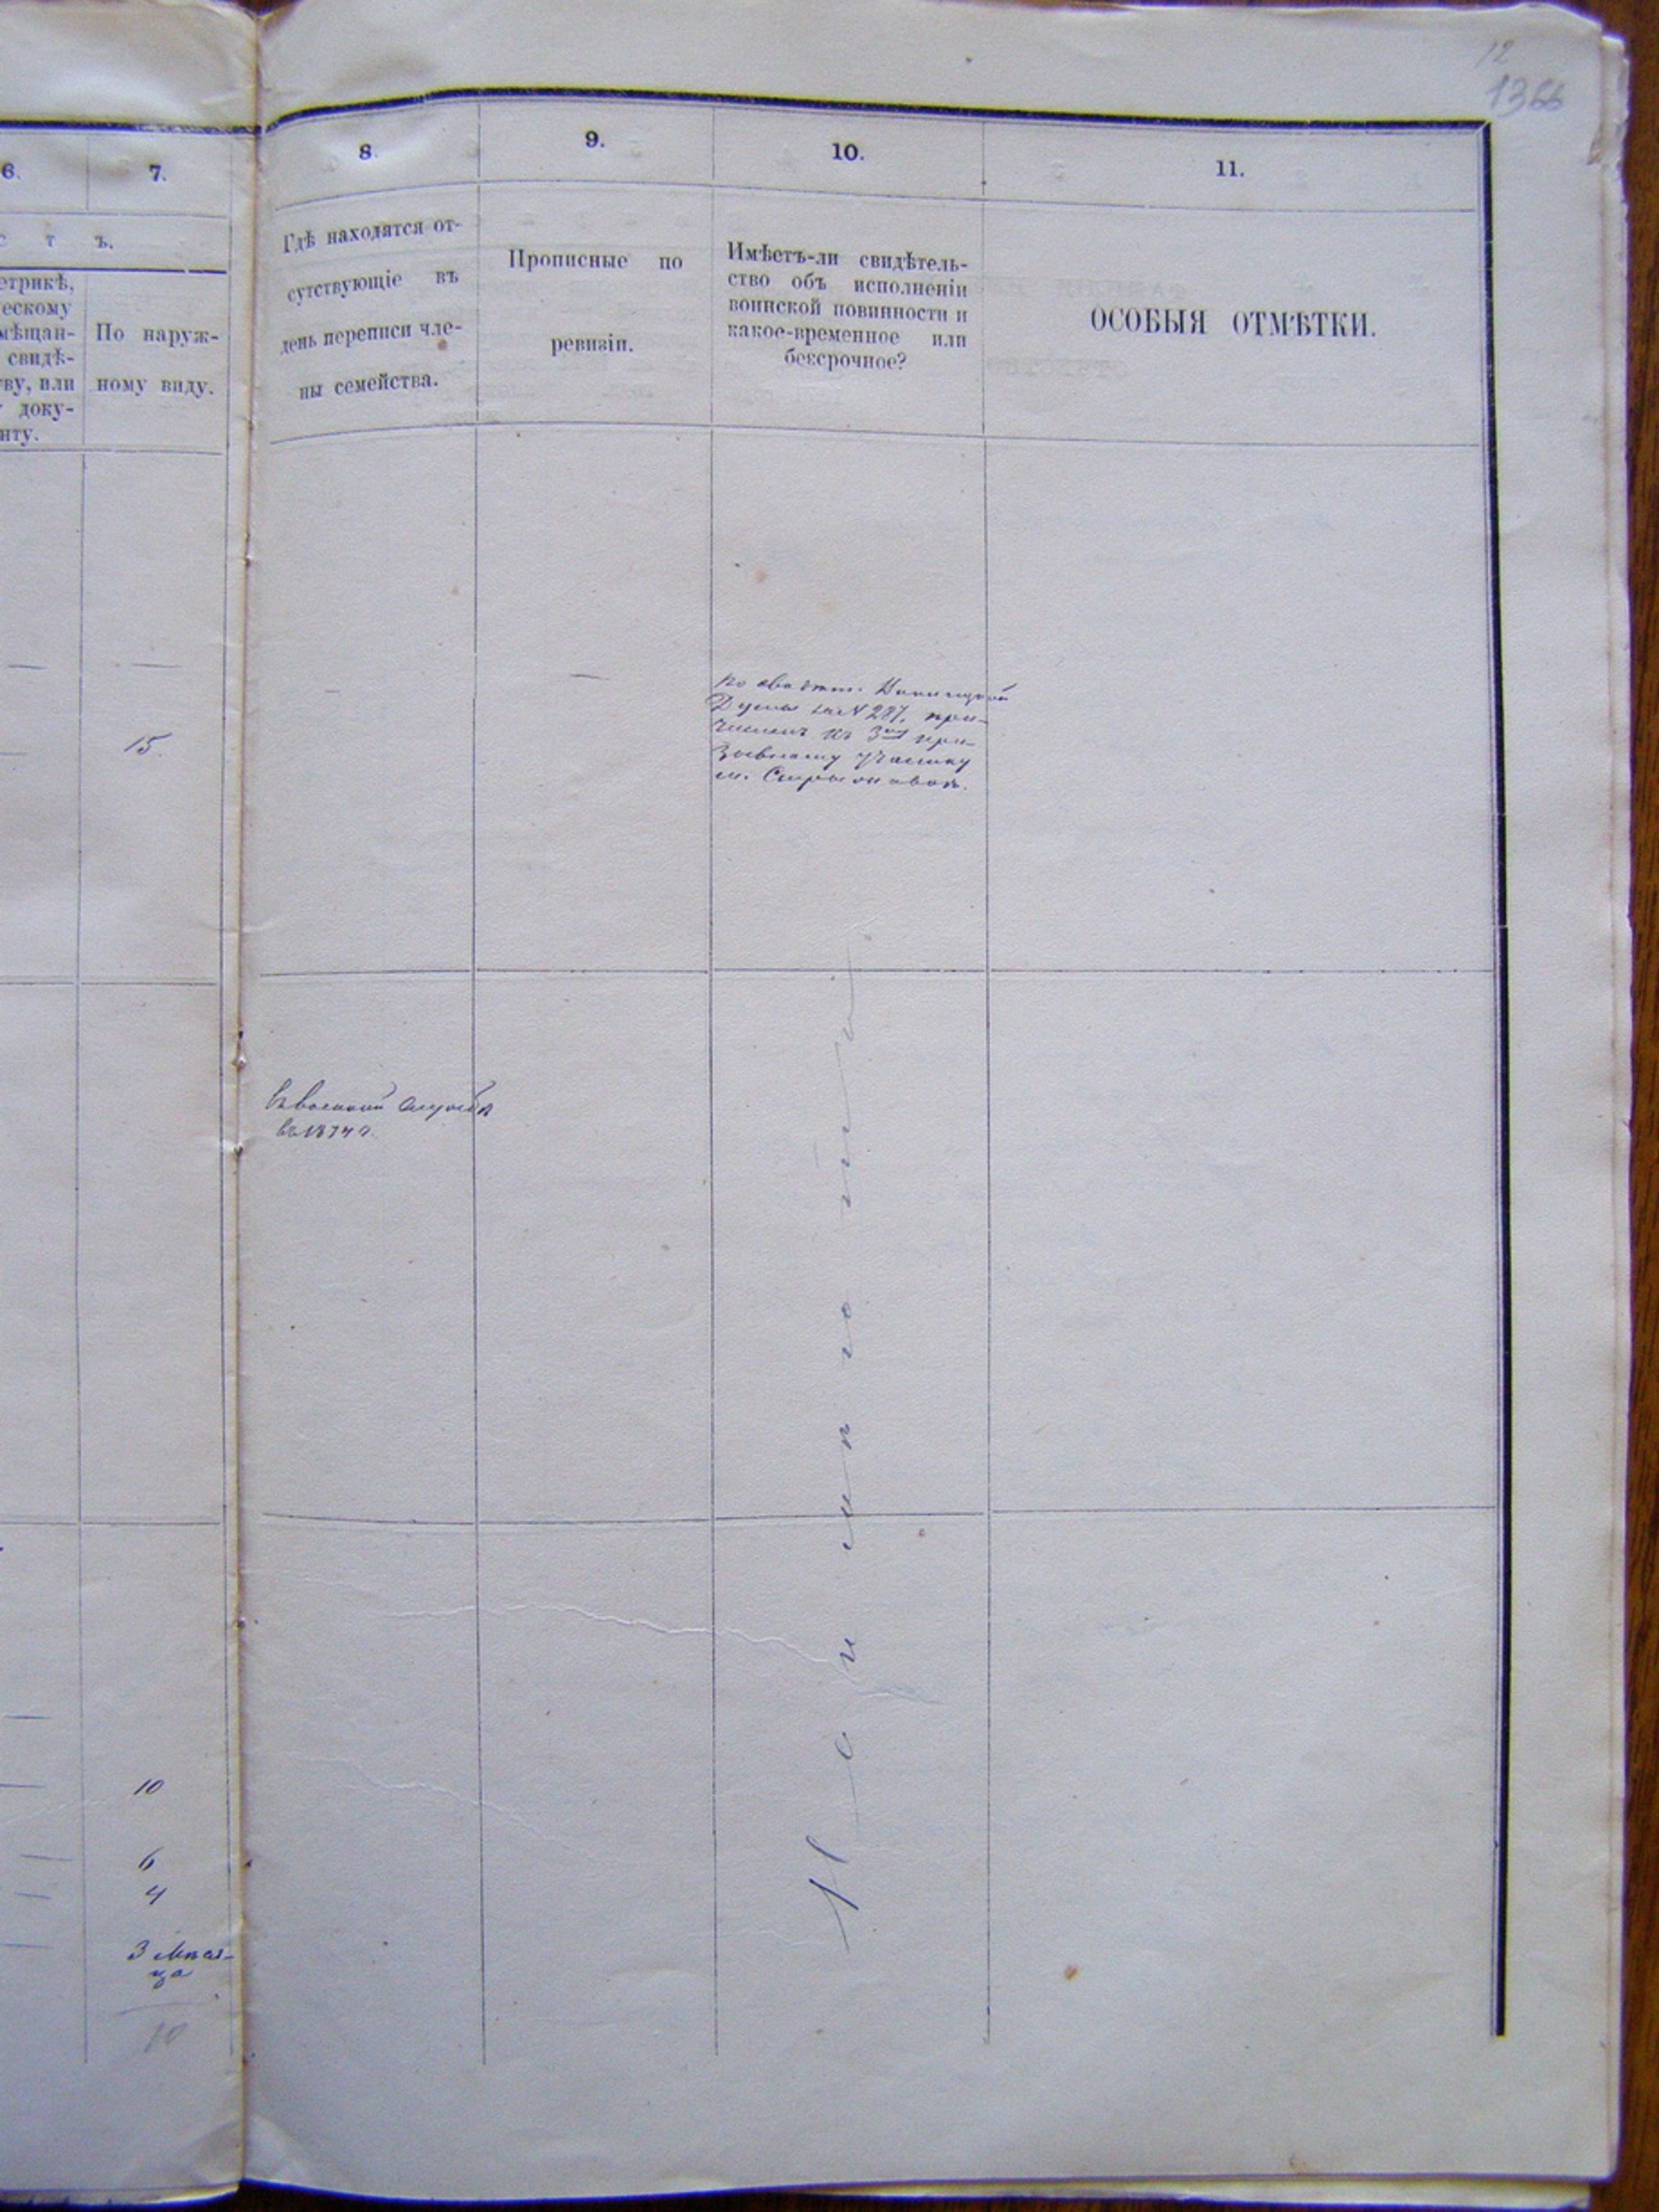 12
1366
6.
7.
с т ъ.
етрикѣ,
ческому
мѣщан-
свидѣ-
тву, или
доку-
нту.
По наруж-
ному виду.
8.
9.
10.
11.
Гдѣ находятся от-
сутствующіе въ
день переписи чле-
ны семейства.
Прописные по
ревизіи.
Имѣетъ-ли свидѣтель-
ство объ исполненіи
воинской повинности и
какое-временное или
безсрочное?
ОСОБЫЯ ОТМѢТКИ.
15.
10
6
4
3 мѣся-
ца
10
Въ военной службѣ
въ 1874 г.
по
Думы за № 287, при-
численъ къ 3му при-
зывному участку
м.